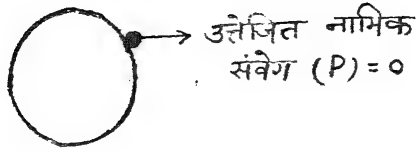 उत्तेजित नाभिक
संवेग (P) = 0